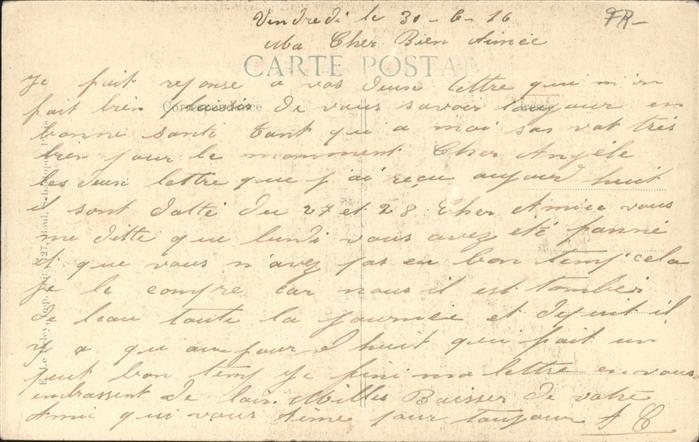 Vendredi le 30-6-16
FR-
Ma Cher Bien Aimée
CARTE POSTALE
Je fait reponse a vos deux lettre que m'on
Correspondance
fait bien plaisir de vous savoir toujour en
bonne santé tant qu a moi sas vat très
bien pour le momment Cher Angèle
les deux lettre que j'ai reçu aujourd huit
il sont datté du 27 et 28 Cher Amiée vous
me ditte que lundi vous avez été fanné
et que vous n'avez pas eu bon temp cela
Je le compre car nous il est tomber
de leau toute la journee et depuit il
y a qu aujour d huit qu'i fait un
peut bon temp Je fini ma lettre en vous
embrassent de loin Milles Baisser de votre
Ami qui vous Aime pour toujour A C